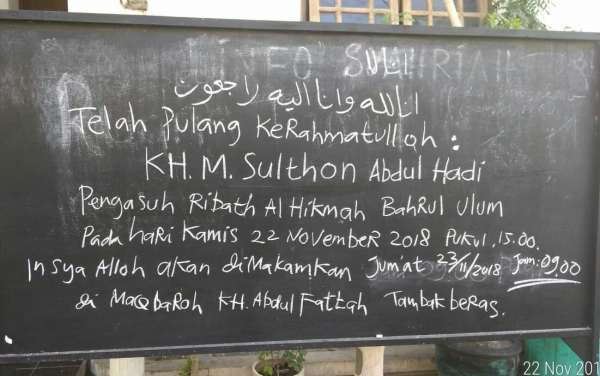 INFO
انا لله وانا اليه راجعون
Telah Pulang KeRahmatulloh :
KH. M. Sulthon Abdul Hadi
Pengasuh Ribath Al Hikmah Bahrul Ulum
Pada hari Kamis 22 November 2018 Pukul, 15.00.
In Sya Alloh akan diMakamkan Jum'at 23/11/2018 Jam: 09.00
di Maqbaroh KH. Abdul Fattah Tambak beras.
22 Nov 201